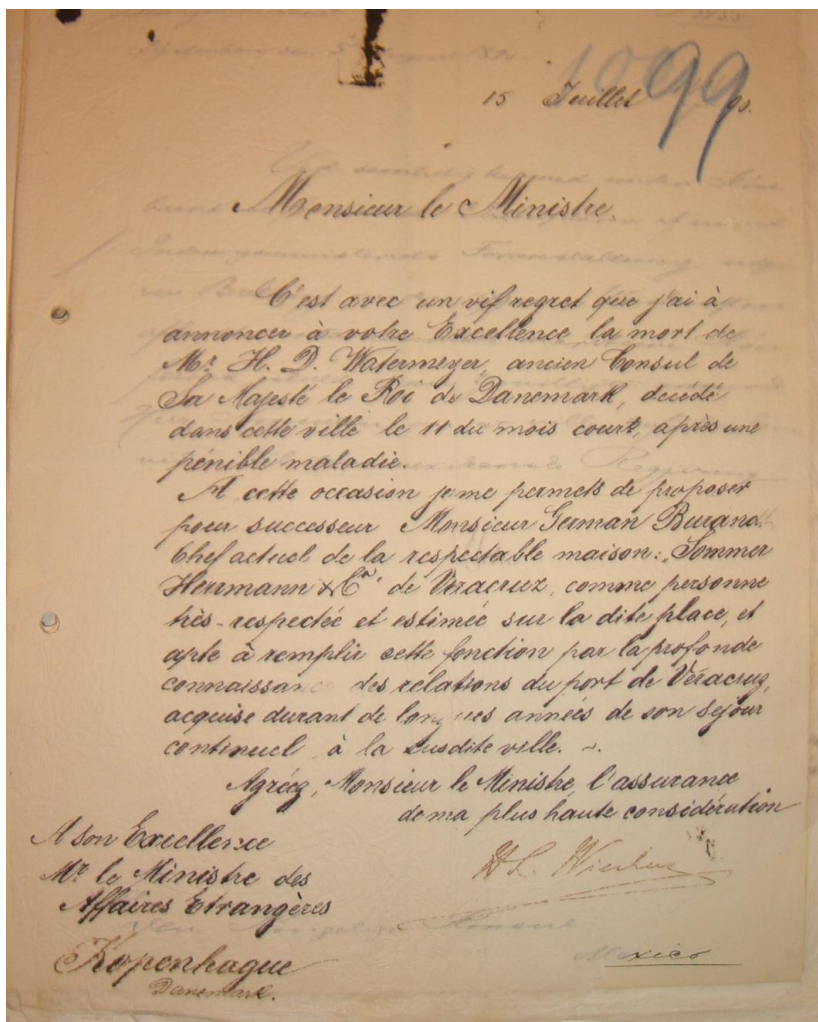 15 Juillet 90.
1099
Monsieur le Ministre.
C'est avec un vif regret que j'ai à
annoncer à votre Excellence la mort de
Mr. H. D. Watermeyer, ancien Consul de
Sa Majesté le Roi de Danemark, décédé
dans cette ville le 11 du mois court, après une
pénible maladie.
A cette occasion je me permets de proposer
pour successeur Monsieur German Burand
Chef actuel de la respectable maison: Sommer
Herrmann & Ca. de Veracruz, comme personne
très-respectée et estimée sur la dite place, et
apte à remplir cette fonction par la profonde
connaissance des relations du port de Véracruz,
acquise durant de longues années de son séjour
continuel à la susdite ville. -.
Agréez, Monsieur le Ministre, l'assurance
de ma plus haute considération
A son Excellence
Mr. le Ministre des
Affaires Etrangères
Kopenhague
Danemark.
Mexico